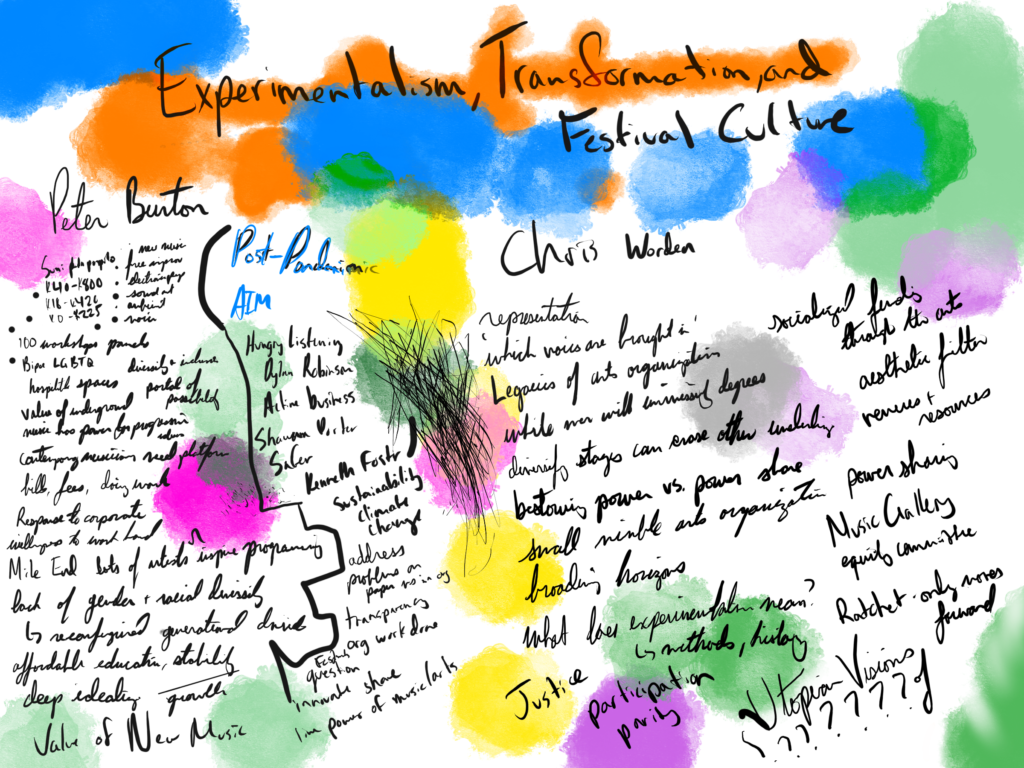 Experimentalism, Transformation, and
Festival Culture
Peter Burton
new music
free improv
sound art
ambient
noise
K40-K800
K0-K225
100 workshops panels
BIPOC LGBTQ diversity + inclusion
spaces portal of
value of underground
music has power for
contemporary musicians need platform
fees, doing work
Response to corporate
willingness to work hard
Mile End lots of artists inspire programing
lack of gender + racial diversity
↳ reconfigured generational divide
affordable education, stability
deep idealing growth
Value of New Music
Post-Pandemic
AIM
Hungry Listening
Dylan Robinson
Active business
Shannon
Safer
Kenneth
sustainability
climate
change
address
problems on
paper not in org
transparency
org work done
question
innovate share
live power of music/arts
Chris Worden
'representation
which voices are brought in'
Legacies of arts organization
while over will immersing degrees
diversify stages can erase other including
bestowing power vs. power share
small nimble arts organization
broading horizons
What does experimentalism mean?
↳ methods, history
Justice
participation
parity
socialized funds
through the arts
aesthetic filter
venues +
resources
power sharing
Music Gallery
equity committee
Ratchet - only moves
forward
Utopian Visions
? ? ? ? ? ? of